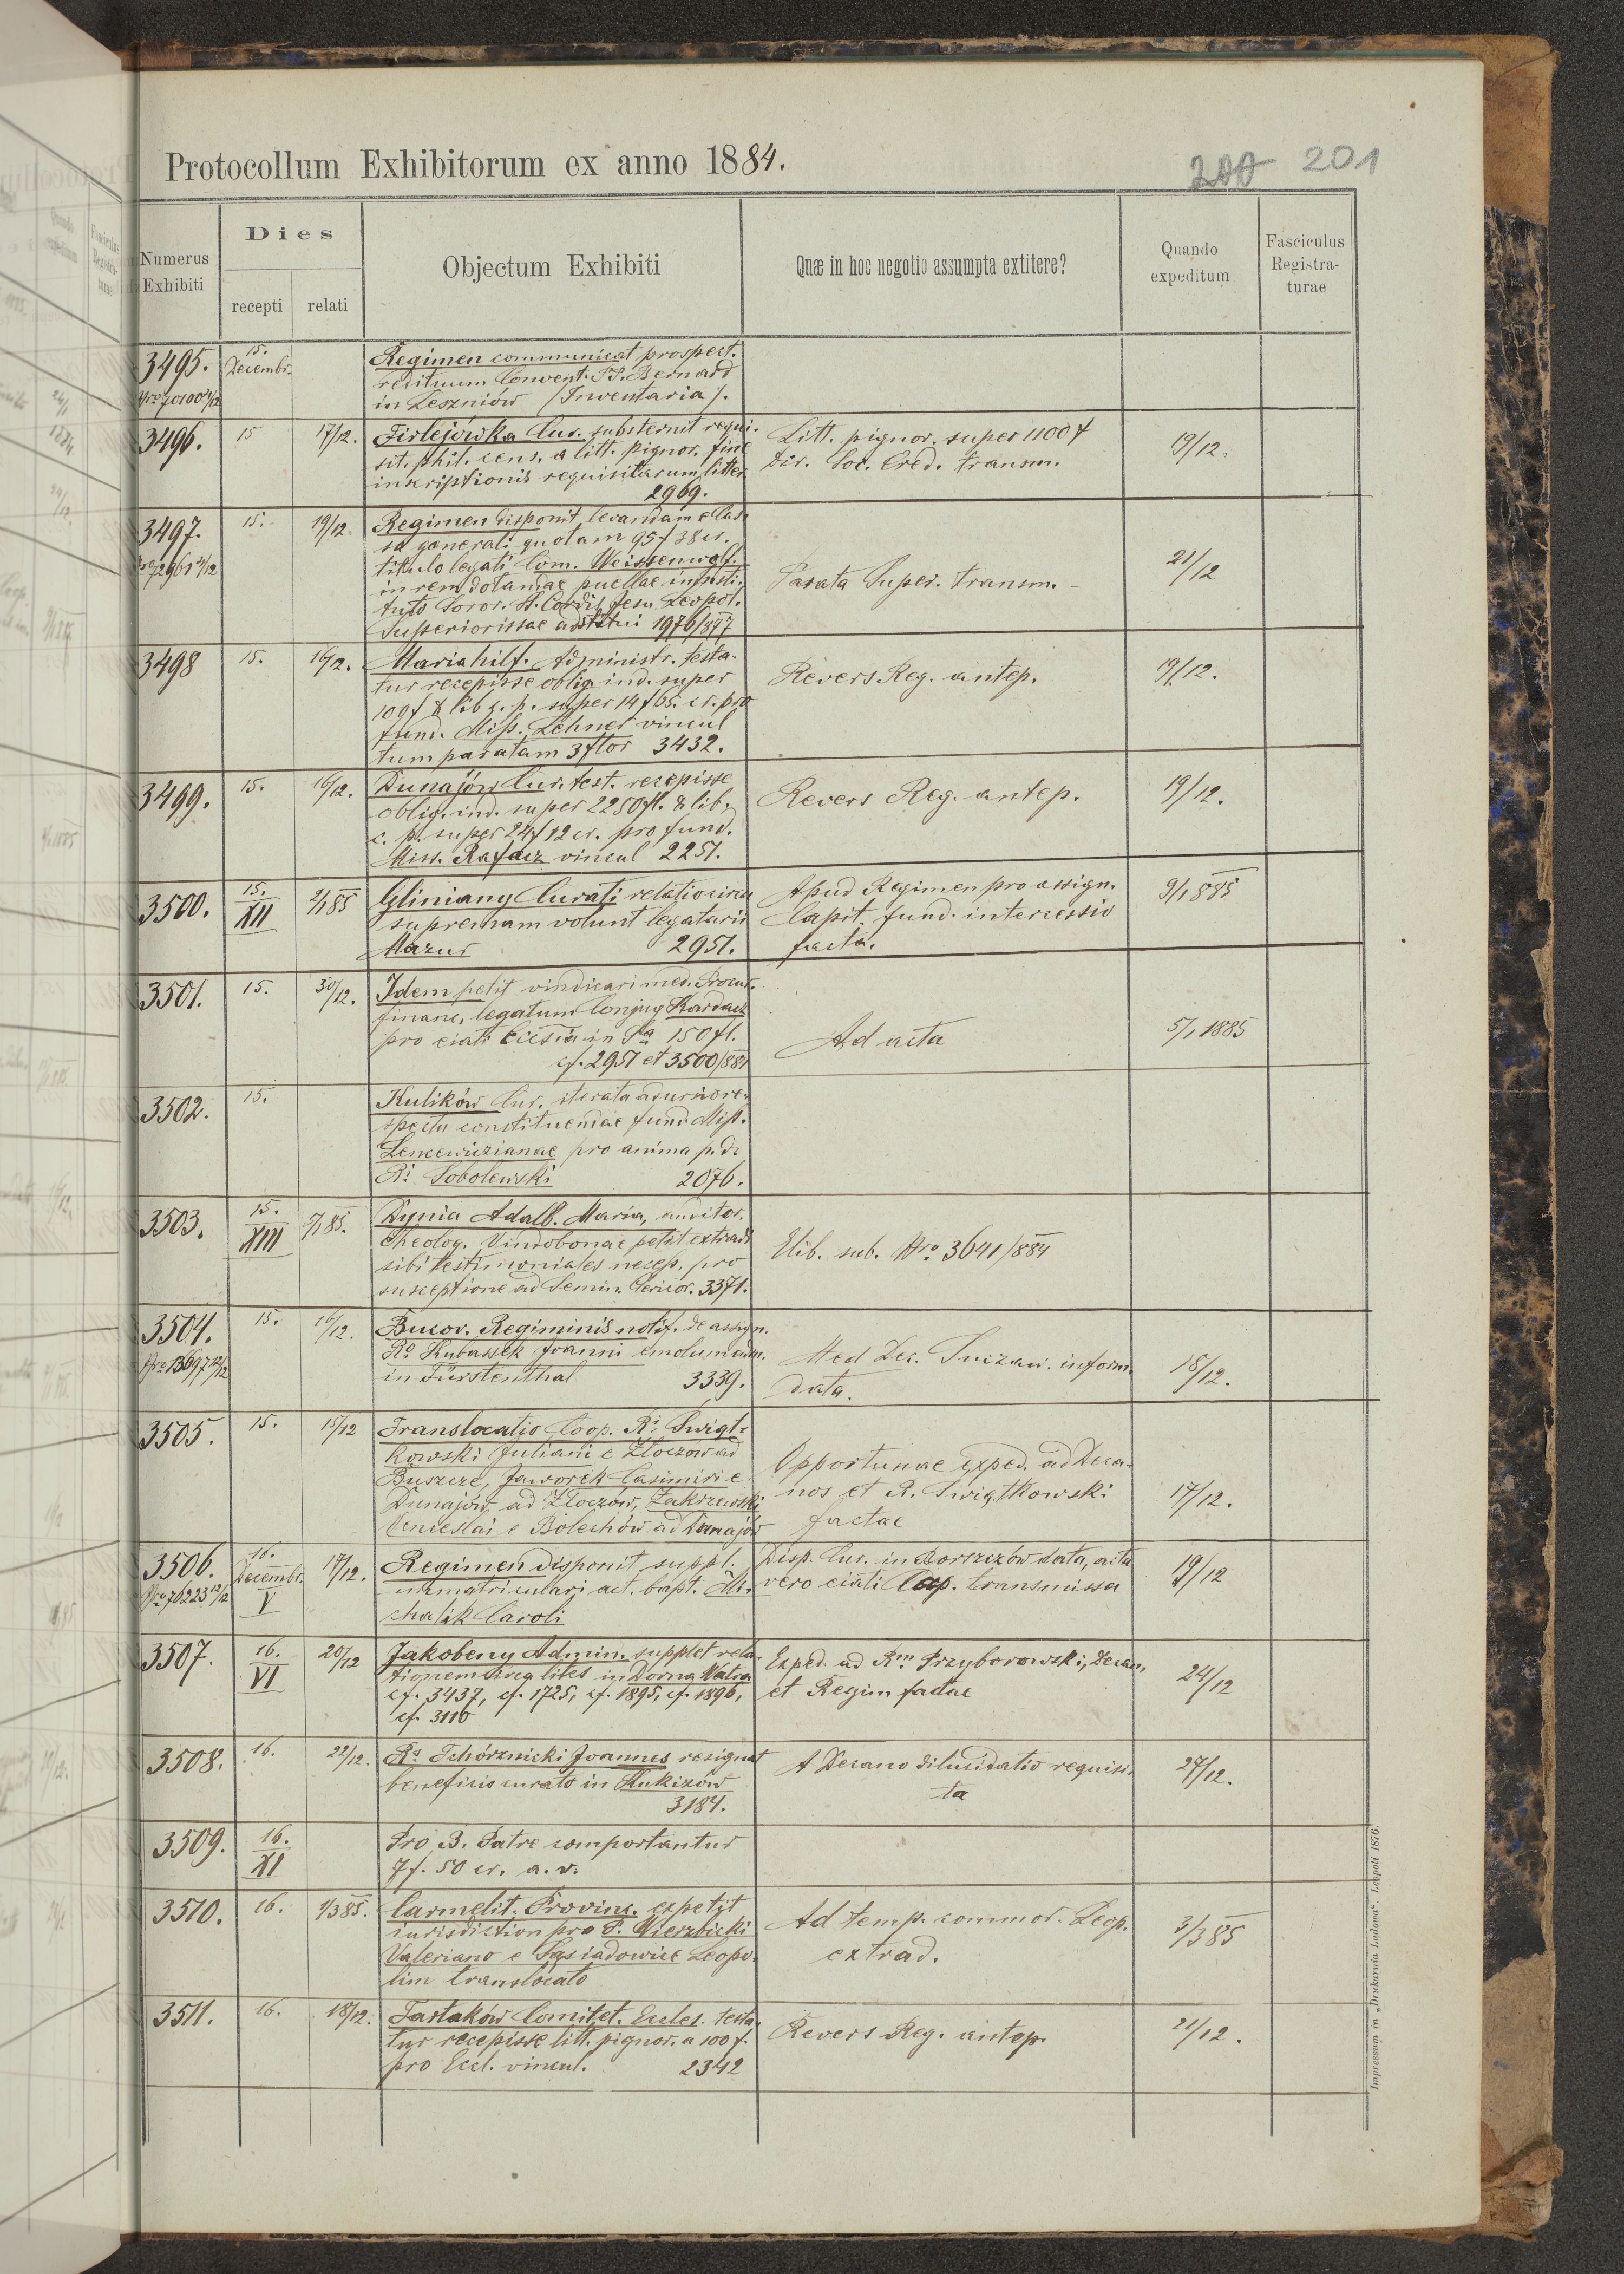 Protocollum Exhibitorum ex anno 1884.
200 201
Numerus Exhibiti
Dies
recepti
relati
Objectum Exhibiti
Quæ in hoc negotio assumpta extitere?
Quando expeditum
Fasciculus Registra-
turae
3495.
15.
Decembr.
Nro 70100 11/12
Regimen communicat prospect.
redituum Convent. PP. Bernard
in Leszniów /Inventaria/.
3496.
15
17/12.
Firlejówka Cur. substernit requi-
sit. phil. cens. a litt. pignor. fine
inscriptionis requisitarum litter
2969.
Litt. pignor. super 1100 f
Dir. Soc. Cred. transm.
19/12.
3497.
15.
19/12.
Regimen disponit, levandam e Cas-
sa generali quotam 95 f 38 cr.
titulo legati Com. Weissenwolf.
in rem dotandae puellae in Insti-
tuto Soror. SS. Cordis Jesu Leopol.
Superiorissae adstitui 1976/877
Parata Super. transm. -
21/12
3498
15.
16/12.
Mariahilf. Administr. testa-
tur recepisse oblig. ind. super
100 f & lib c. p. super 14 f 65. cr. pro
fund. Miss. Lehner vincul
tum paratam 3 flor 3432.
Revers Reg. antep.
19/12.
3499.
15.
16/12.
Dunajów Cur. test. recepisse
oblig. ind. super 2250 fl. & lib.
c. p. super 24 f 12 cr. pro fund.
Miss. Rafacz vincul 2251.
Revers Reg. antep.
19/12.
3500.
15.
XII
2/1 85
Gliniany Curati relatio circa
supremam volunt legatarii
Mazur 2951.
Apud Regimen pro assign.
Capit. fund. intercessio
facta.
9/1 885
3501.
15.
30/12.
Idem petit vindicari med. Procur.
financ. legatum Conjug Kardasz
pro eiati Ecclsia in Sa 150 fl.
cf. 2951 et 3500/884
Ad acta
5/1 1885
3502.
15.
Kulików Cur. iterata adursio re-
spectu constituendae fund. Miss.
Lencewiczianae pro anima p. d.
Ri Sobolewski 2076.
3503.
15.
XIII
5/1 85.
Dynia Adalb. Maria, auditor.
Theolog. Vindobonae petit extradi
sibi testimoniales necess. pro
susceptione ad Semin. Cleric. 3371.
Elib. sub. Nro 3641/884
3504.
15.
16/12.
Bucov. Regiminis notif. de assign.
Ro Kubassek Joanni emolum adm.
in Fürstenthal 3339.
Med Dec. Suczaw. inform.
data.
18/12.
3505.
15.
15/12
Translocatio Coop. Ri Swiąt-
kowski Juliani e Złoczów ad
Buszcze, Jaworek Casimiri e
Dunajów ad Złoczów, Zakrzewski
Venceslai e Bolechów ad Dunajów
Opportunae exped. ad Deca-
nos et R. Swiątkowski
factae
17/12.
3506.
16.
Decembr.
V
Nro 70223 12/12
17/12.
Regimen disponit suppl.
immatriculari act. bapt. Mi-
chalik Caroli
Disp. Cur. in Borszczów data, acta
vero eiati Cap. transmissa
19/12
3507.
16.
VI
20/12
Jakobeny Admin. supplet rela-
tionem circa lites in Dorna Watra
cf. 3437, cf. 1725, cf. 1895, cf. 1896,
cf. 3110
Exped. ad Rm Przyborowski, Decan,
et Regim factae
24/12
3508.
16.
22/12.
Rs Tchórznicki Joannes resignat
beneficio curato in Kukizów
3184.
A Decano dilucidatio requisi-
ta
27/12.
3509.
16.
XI
Pro B. Patre comportantur
7 f. 50 cr. a. v.
3510.
16.
1/3 85.
Carmelit. Provinc. expetit
iurisdiction pro P. Wierzbicki
Valeriano e Sąsiadowice Leopo-
lim translocato
Ad temp. commor. Leop.
extrad.
3/3 85
3511.
16.
18/12.
Tartaków Comitet. Eccles. testa-
tur recepisse litt. pignor. a 100 f.
pro Eccl. vincul. 2342
Revers Reg. antep.
21/12.
Impressum in „Drukarnia Ludowa“. Leopoli 1876.